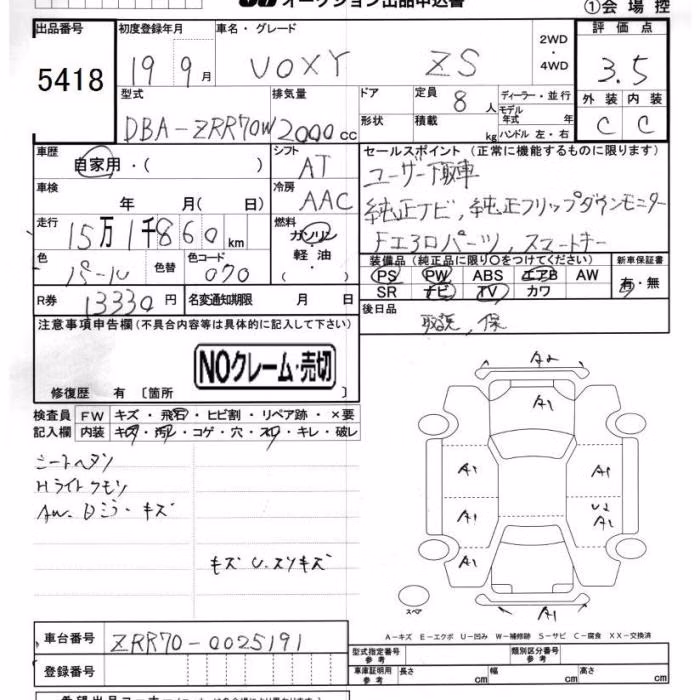 オークション出品申込書 ①会場控
出品番号 初度登録年月 車名・グレード 2WD・4WD 評価点
5418 19 9月 VOXY ZS 3.5
型式 排気量 ドア 定員 8人 ディーラー・並行 モデル年式 年 外装 内装
DBA-ZRR70W 2000cc 形状 積載 kg ハンドル 左・右 C C
車歴 シフト セールスポイント(正常に機能するものに限ります)
自家用・( ) AT ユーザー下取車
車検 冷房 純正ナビ,純正フリップダウンモニター
年 月(日) AAC Fエアロパーツ,スマートキー
走行 15万1千860km 燃料 ガソリン・軽油・
色 パール 色替 色コード 070 装備品(純正品に限り○をつけてください) 新車保証書
PS PW ABS エアB AW 有・無
SR ナビ TV カワ
R券 13330円 名変通知期限 月 日 後日品
取説,保
注意事項申告欄(不具合内容等は具体的に記入して下さい)
NOクレーム・売切
修復歴 有〔箇所 〕
検査員 FW キズ・飛石・ヒビ割・リペア跡・×要
記入欄 内装 キズ・汚れ・コゲ・穴・スレ・キレ・破レ
シートヘタリ
Hライトクモリ
AW. Dミラーキズ
キズ U.スリキズ
A2
A1
A1 A1
A1 U2 A1
A1
A1
スペア
A-キズ E-エクボ U-凹み W-補修跡 S-サビ C-腐食 XX-交換済
車台番号 ZRR70-0025191
型式指定番号 参考 類別区分番号 参考
登録番号 車庫証明用 参考 長さ cm 幅 cm 高さ cm